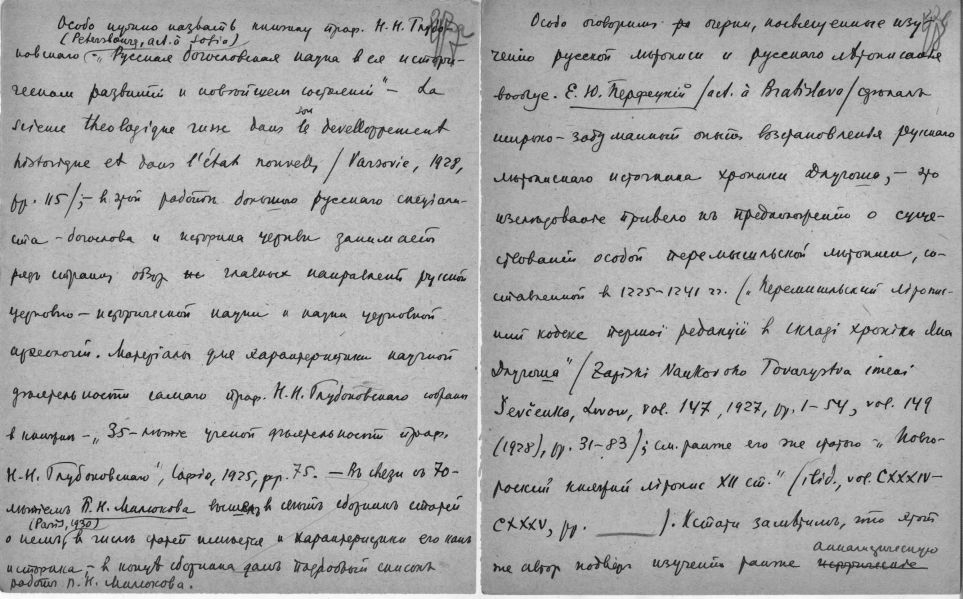 Особо нужно назвать книжку проф. Н. Н. Глубо-
(Petersbourg, act. à Sofia)
ковскаго „Русская богословская наука в ея истори-
ческом развитіи и новѣйшем состояніи" – La
science theologique russe dans le developpement
son
historique et dans l'état nouvelle / Varsovie, 1928,
pp. 115/; – в этой работѣ большого русскаго спеціали-
ста – богослова и историка церкви занимает
ряд страниц обзор главных направленій русской
церковно – исторической науки и науки церковной
археологіи. Матеріалы для характеристики научной
дѣятельности самаго проф. Н. Н. Глубоковскаго собраны
в книжкѣ – „35-лѣтіе ученой дѣятельности проф.
Н. Н. Глубоковскаго", Софія, 1925, pp. 75. – В связи с 70-
лѣтіем П. Н. Милюкова вышел в свѣт сборник статей
(Paris, 1930)
о нем, в числѣ статей имѣется и характеристика его как
историка, – в концѣ сборника дан подробный список
работ П. Н. Милюкова.
Особо оговорим очерки, посвященные изу-
ченію русской лѣтописи и русскаго лѣтописанія
вообще. Е. Ю. Перфецкій /act. à Bratislava/ сдѣлал
широко-задуманный опыт возстановленья русскаго
лѣтописнаго источника хроники Длугоша, – это
изслѣдованіе привело к предположенію о суще-
ствованіи особой перемышльской лѣтописи, со-
ставленной в 1225–1241 гг. („Перемишльский літопис-
ний кодекс першої редакції в складі хроніки Яна
Длугоша" / Zapiski Naukovoho Tovarystva imeni
Ševčenka, Lwow, vol. 147, 1927, pp. 1–54, vol. 149
(1928), pp. 31–83/; см. ранже его же статью „
літопис XII ст." / ibid., vol. CXXXIV–
CXXXV, pp. ). Кстати замѣтим, что этот
аналитическую
же автор подверг изученію ранже